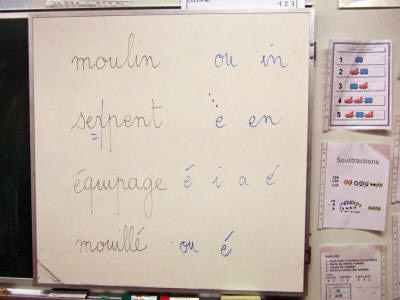 127
moulin ou in
serpent e en
équipage é i a é
mouillé ou é
1
2
3
4
5
Soustractions